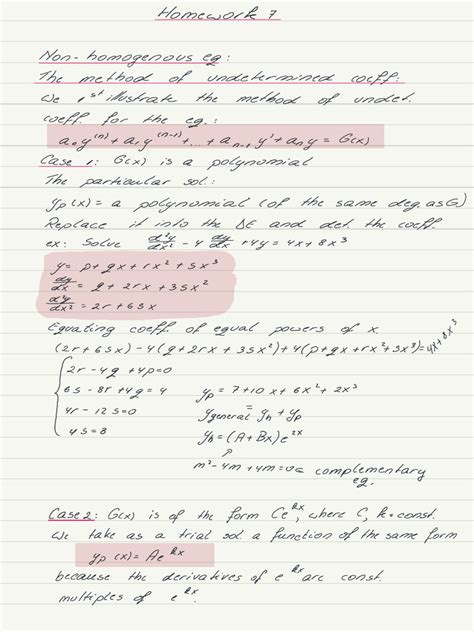 Homework 7
Non-homogenous eq:
The method of undetermined coeff:
We 1st illustrate the method of undet.
coeff. for the eq.:
a₀y⁽ⁿ⁾ + a₁y⁽ⁿ⁻¹⁾ + ... + aₙ₋₁y' + aₙy = G(x)
Case 1: G(x) is a polynomial
The particular sol:
yp(x) = a polynomial (of the same deg. as G)
Replace it into the DE and det. the coeff.
ex: Solve d²y/dx² - 4 dy/dx + 4y = 4x + 8x³
y = p + qx + rx² + sx³
dy/dx = q + 2rx + 3sx²
d²y/dx² = 2r + 6sx
Equating coeff. of equal powers of x
(2r + 6sx) - 4(q + 2rx + 3sx²) + 4(p + qx + rx² + sx³) = 4x + 8x³
2r - 4q + 4p = 0
6s - 8r + 4q = 4 yp = 7 + 10x + 6x² + 2x³
4r - 12s = 0 ygeneral = yh + yp
4s = 8 yh = (A + Bx)e²ˣ
m² - 4m + 4m = 0 complementary
eq.
Case 2: G(x) is of the form Ce^kx, where C, k = const.
We take as a trial sol. a function of the same form
yp(x) = Ae^kx
because the derivatives of e^kx are const.
multiples of e^kx.